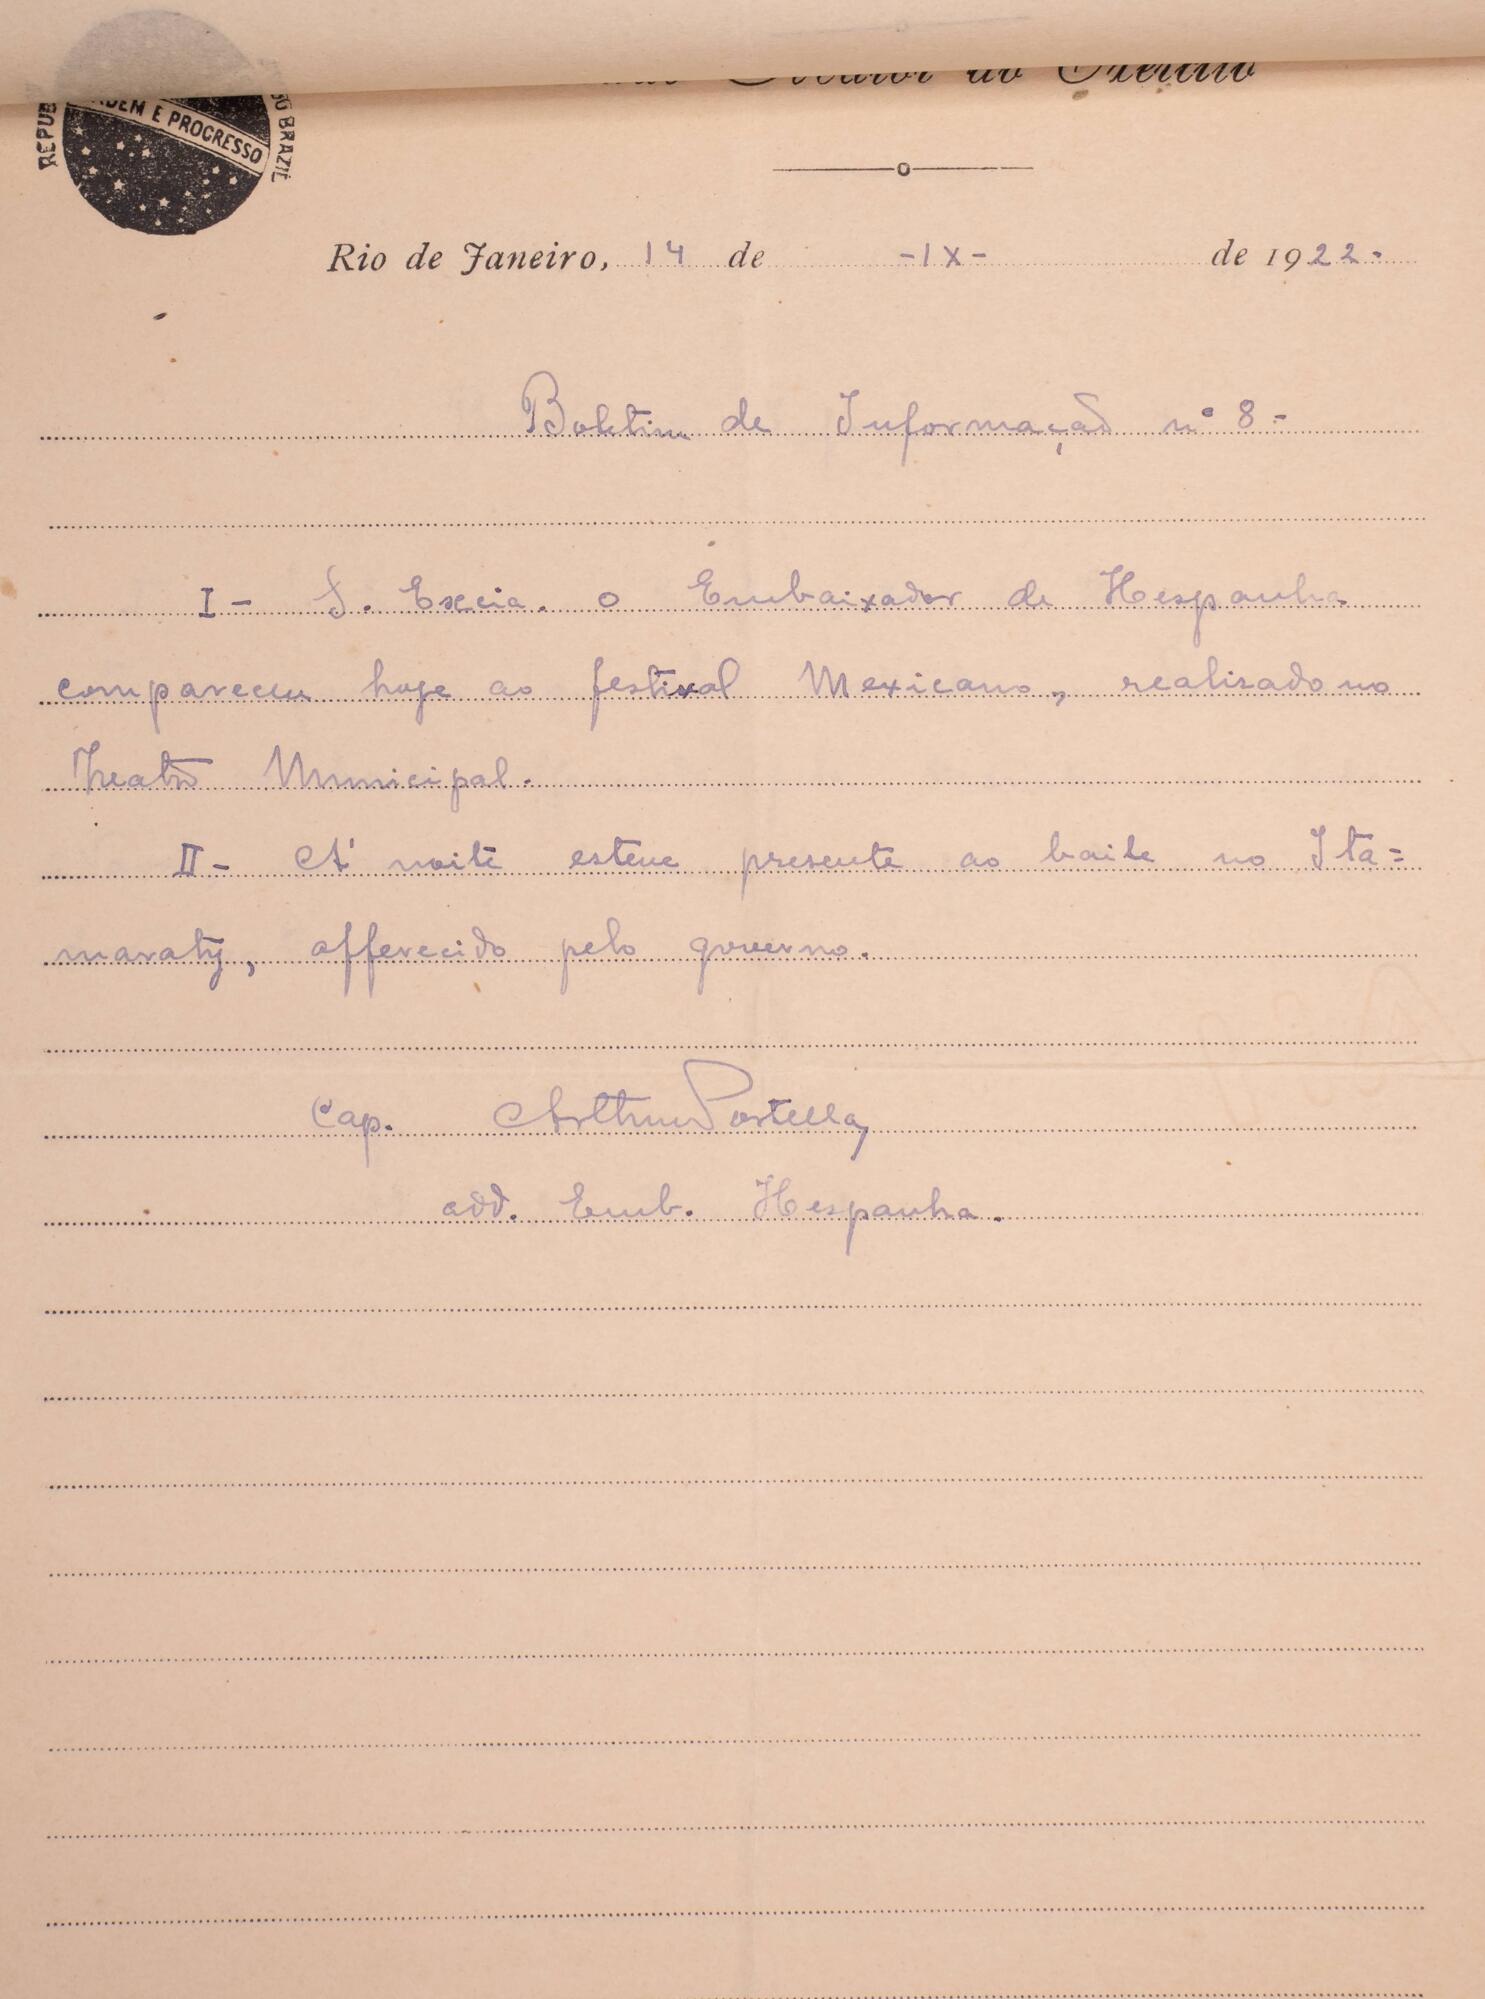 REPUB DO BRAZIL
ORDEM E PROGRESSO
do Exercito
Rio de Janeiro, 14 de -IX- de 1922.
Boletim de Informação nº 8-
I- S. Excia. o Embaixador de Hespanha
compareceu hoje ao festival Mexicano, realisado no
Theatro Municipal.
II- A' noite esteve presente ao baile no Ita=
maraty, offerecido pelo governo.
Cap. Arthur Portella,
add. Emb. Hespanha.